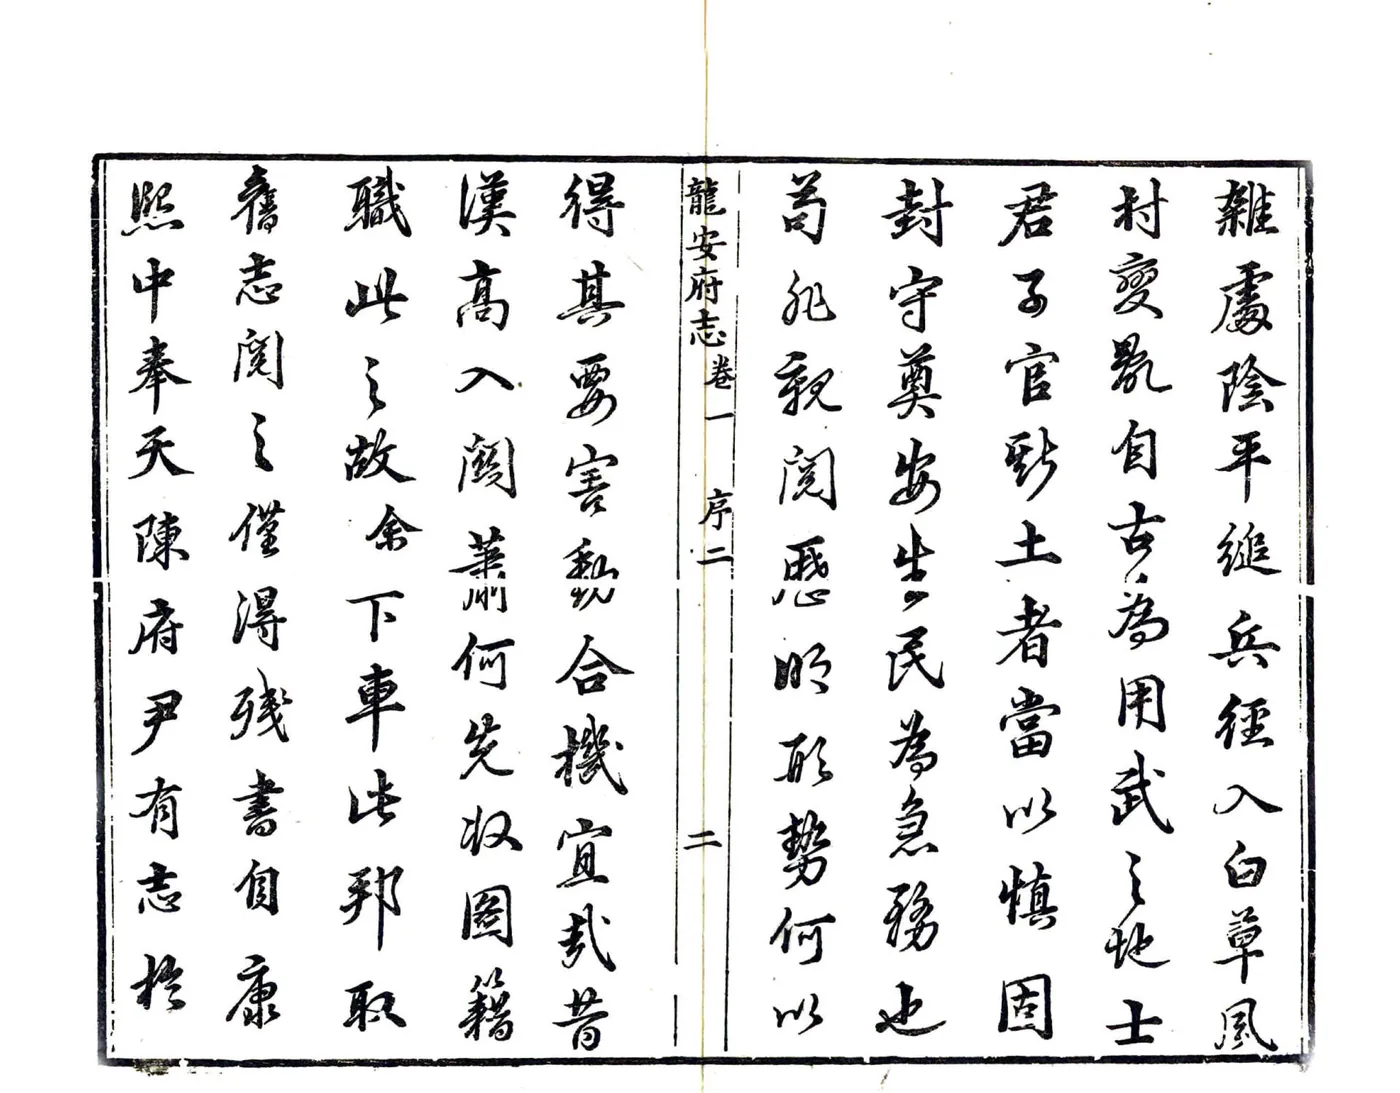 雜處陰平縋兵徑入白草風
村變亂自古為用武之地士
君子官斯土者當以慎固
封守奠安生民為急務也
苟非親閱歷明形勢何以
龍安府志 卷一 序二 二
得其要害動合機宜哉昔
漢高入關蕭何先收圖籍
職此之故余下車此邦取
舊志閱之僅得殘書自康
熙中奉天陳府尹有志於